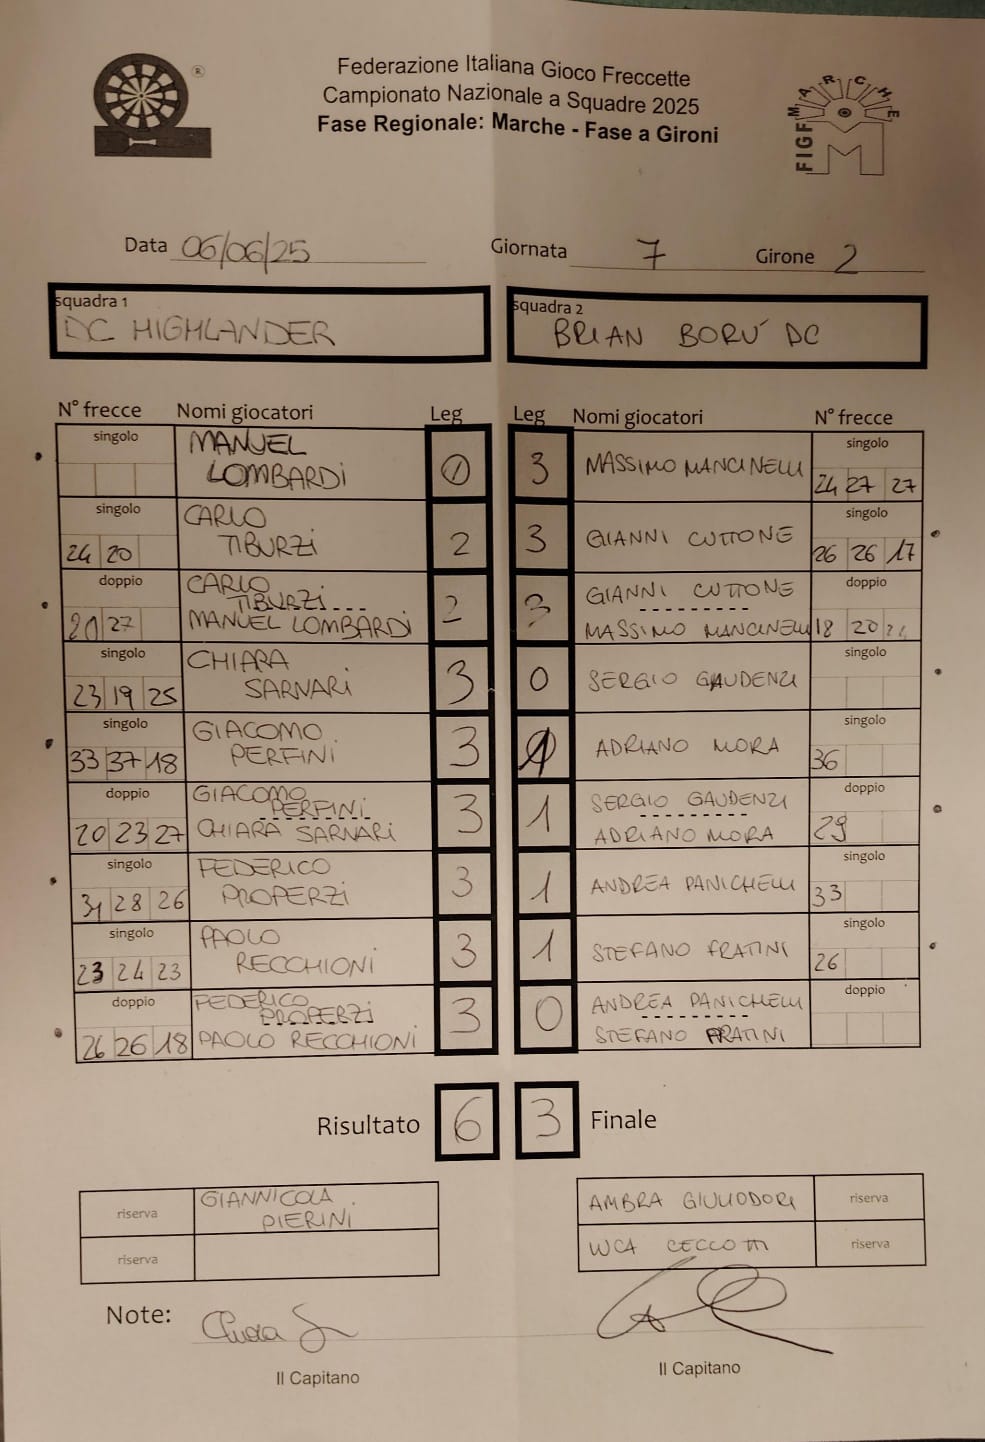 ®
Federazione Italiana Gioco Freccette
Campionato Nazionale a Squadre 2025
Fase Regionale: Marche - Fase a Gironi
MARCHE
FIGF
M
Data 06/06/25 Giornata 7 Girone 2
squadra 1 squadra 2
DC HIGHLANDER BRIAN BORÚ DC
N° frecce Nomi giocatori Leg Leg Nomi giocatori N° frecce
singolo MANUEL singolo
LOMBARDI 3 MASSIMO MANCINELLI 24 27 27
singolo CARLO singolo
24 20 TIBURZI 2 3 GIANNI CUTTONE 26 26 17
doppio CARLO GIANNI CUTTONE doppio
TIBURZI 2 3
20 27 MANUEL LOMBARDI MASSIMO MANCINELLI 18 20
singolo CHIARA singolo
23 19 25 SARNARI 3 0 SERGIO GAUDENZI
singolo GIACOMO singolo
33 37 18 PERFINI 3 1 ADRIANO MORA 36
doppio GIACOMO SERGIO GAUDENZI doppio
PERFINI 3 1
20 23 27 CHIARA SARNARI ADRIANO MORA 29
singolo FEDERICO singolo
31 28 26 PROPERZI 3 1 ANDREA PANICHELLI 33
singolo PAOLO singolo
23 24 23 RECCHIONI 3 1 STEFANO FRATINI 26
doppio FEDERICO ANDREA PANICHELLI doppio
PROPERZI 3 0
26 26 18 PAOLO RECCHIONI STEFANO FRATINI
Risultato 6 3 Finale
riserva GIANNICOLA AMBRA GIULIODORI riserva
PIERINI
riserva LUCA CECCOTTI riserva
Note:
Il Capitano Il Capitano